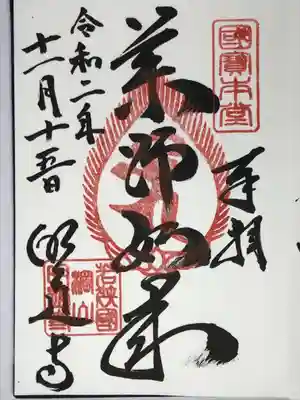 國寶本堂
奉拝
薬師如来
令和二年
十一月十五日
明通寺
若狭國